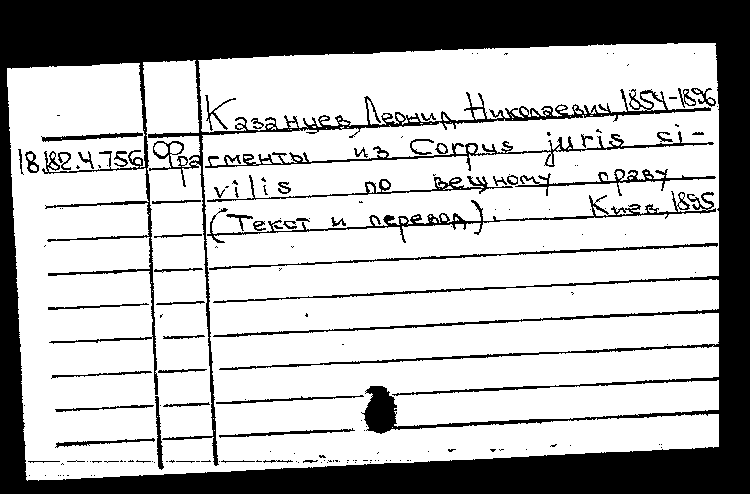 Казанцев, Леонид Николаевич, 1854-1896
18.182.4.756 Фрагменты из Corpus juris ci-
vilis по вещному праву.
(Текст и перевод). Киев, 1895